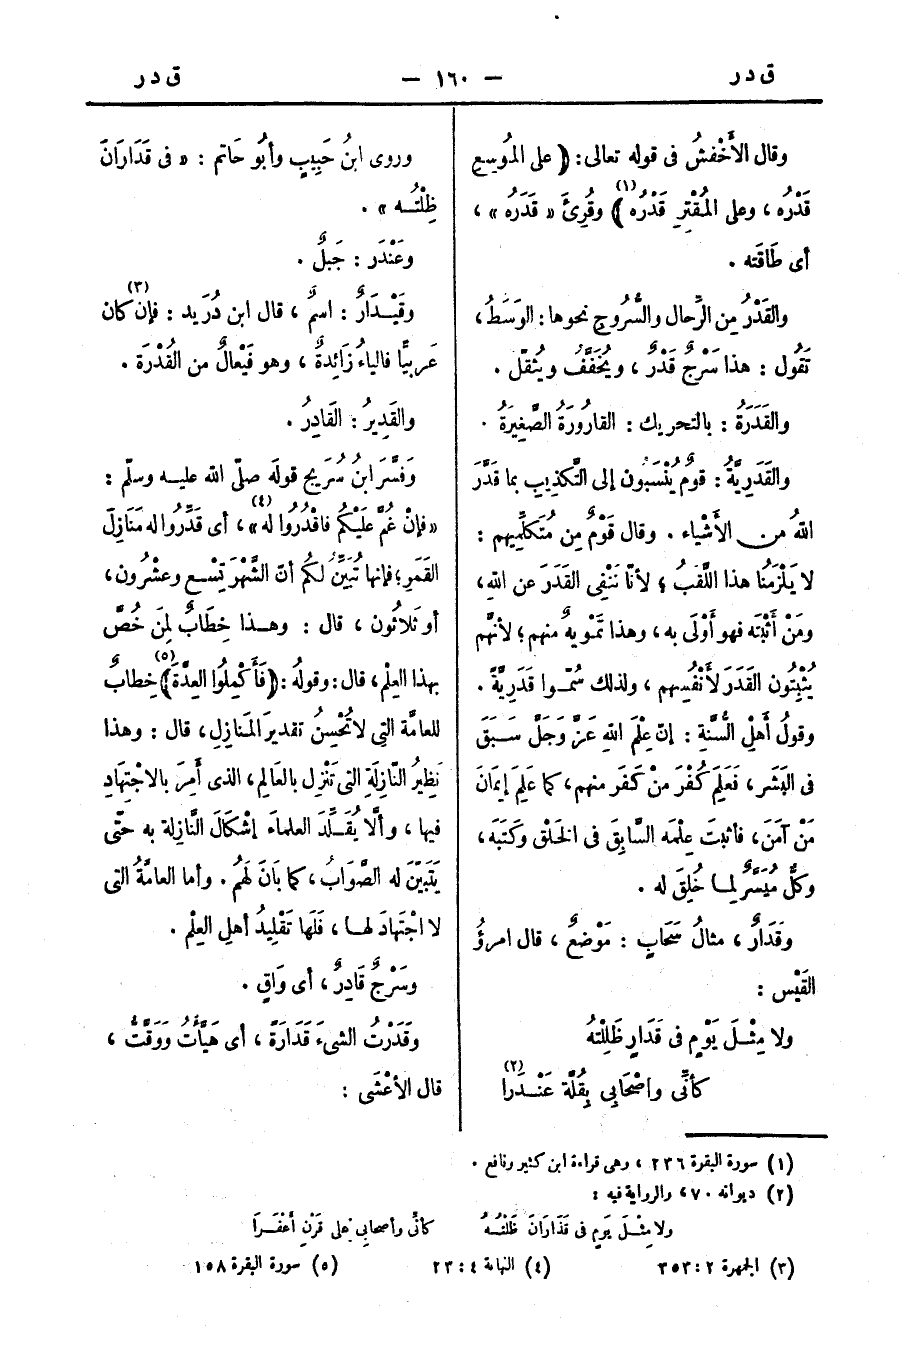 ق د ر — ١٦٠ — ق د ر
وقال الأَخْفشُ فى قوله تعالى: ﴿ على المُوسِعِ
قَدْرُه ، وعلى المُقْتِرِ قَدْرُه ﴾(١) وقُرِئَ « قَدَرُه » ،
أى طَاقَته .
والقَدْرُ من الرِّحال والسُّروجِ نحوها : الوَسَطُ ،
تَقُول : هذا سَرْجٌ قَدْرٌ ، ويُخَفَّفُ ويُثقّل .
والقَدَرَةُ : بالتحريك : القارُورَةُ الصَّغِيرَةُ .
والقَدَرِيَّةُ : قومٌ يُنْسَبُون إلى التَّكذِيبِ بما قَدَّرَ
اللهُ من الأَشْياء . وقال قَوْمٌ مِن مُتَكلِّمِيهم :
لا يَلْزَمُنا هذا اللَّقَبُ ؛ لأنّا نَنْفِى القَدَرَ عن اللهِ ،
ومَنْ أَثْبَتَه فهو أَوْلَى به ، وهذا تَمْوِيهٌ منهم ؛ لأنَّهم
يُثْبِتُون القَدَرَ لأَنْفُسِهم ، ولذلك سُمّوا قَدَرِيَّةً .
وقولُ أَهْلِ السُّنَّةِ : إنّ عِلْمَ اللهِ عَزَّ وَجَلَّ سَبَقَ
فى البَشَرِ ، فَعَلِمَ كُفْرَ مَنْ كَفَرَ منهم ، كما عَلِمَ إيمَانَ
مَنْ آمَنَ ، فأثبتَ عِلْمَه السَّابِقَ فى الخَلْقِ وكَتَبَه ،
وكلٌّ مُيَسَّرٌ لِما خُلِقَ له .
وقَدَارٌ ، مثالُ سَحَابٍ : مَوْضعٌ ، قال امرؤُ
القَيْسِ :
ولا مِثْلَ يَوْمٍ فى قَدَارٍ ظَلِلْتُه
كأَنِّى وأَصْحَابِى بِقُلَّةِ عَنْدَرَا(٢)
وروى ابنُ حَبِيبٍ وأبُو حَاتم : « فى قَدَارَانَ
ظِلْتُه » .
وعَنْدَر : جَبَلٌ .
وقَيْدَارٌ : اسمٌ ، قال ابن دُرَيد(٣) : فإن كان
عَربيًّا فالياءُ زَائِدةٌ ، وهو فَيْعالٌ من القُدْرَة .
والقَدِيرُ : القَادِرُ .
وَفسَّرَ ابنُ سُرَيجٍ قولَه صلّى الله عليه وسلّم :
«فإنْ غُمَّ عَلَيْكُم فاقْدُرُوا له»(٤) ، أى قَدِّرُوا له مَنَازِلَ
القَمَرِ ؛ فإنها تُبَيِّنُ لكُم أنّ الشَّهْرَ تِسْع وعشْرون ،
أو ثَلاثُون ، قال : وهذا خِطَابٌ لِمَن خُصَّ
بهذا العِلْم ، قال : وقولُه : ﴿ فَأَكْمِلُوا العِدَّةَ ﴾(٥) خِطابٌ
للعامَّة التى لا تُحْسِنُ تقديرَ المَنازِلِ ، قال : وهذا
نَظِيرُ النَّازِلَةِ التى تَنْزِل بالعَالِمِ ، الذى أُمِرَ بالاجْتِهَادِ
فيها ، وألّا يُقَلِّدَ العلماءَ إشْكَالَ النَّازِلة به حتّى
يَتَبيَّنَ له الصَّوَابُ ، كما بَانَ لَهُم . وأما العامّةُ التى
لا اجْتِهَادَ لها ، فَلَها تَقْلِيدُ أهلِ العِلْم .
وسَرْجٌ قَادِرٌ ، أى وَاقٍ .
وقَدَرْتُ الشىءَ قَدَارَةً ، أى هَيَّأْتُ وَوَقَّتُّ ،
قال الأعْشَى :
(١) سورة البقرة ٢٣٦ ، وهى قراءة ابن كثير ونافع .
(٢) ديوانه ٧٠ ، والرواية فيه :
ولا مِثْلَ يَومٍ فى قَدَارَانَ ظَلْتُهُ كأنِّى وأصحابِى على قَرْنِ أعْفَرَا
(٣) الجمهرة ٢ : ٢٥٣ (٤) النهاية ٤ : ٢٣ (٥) سورة البقرة ١٥٨